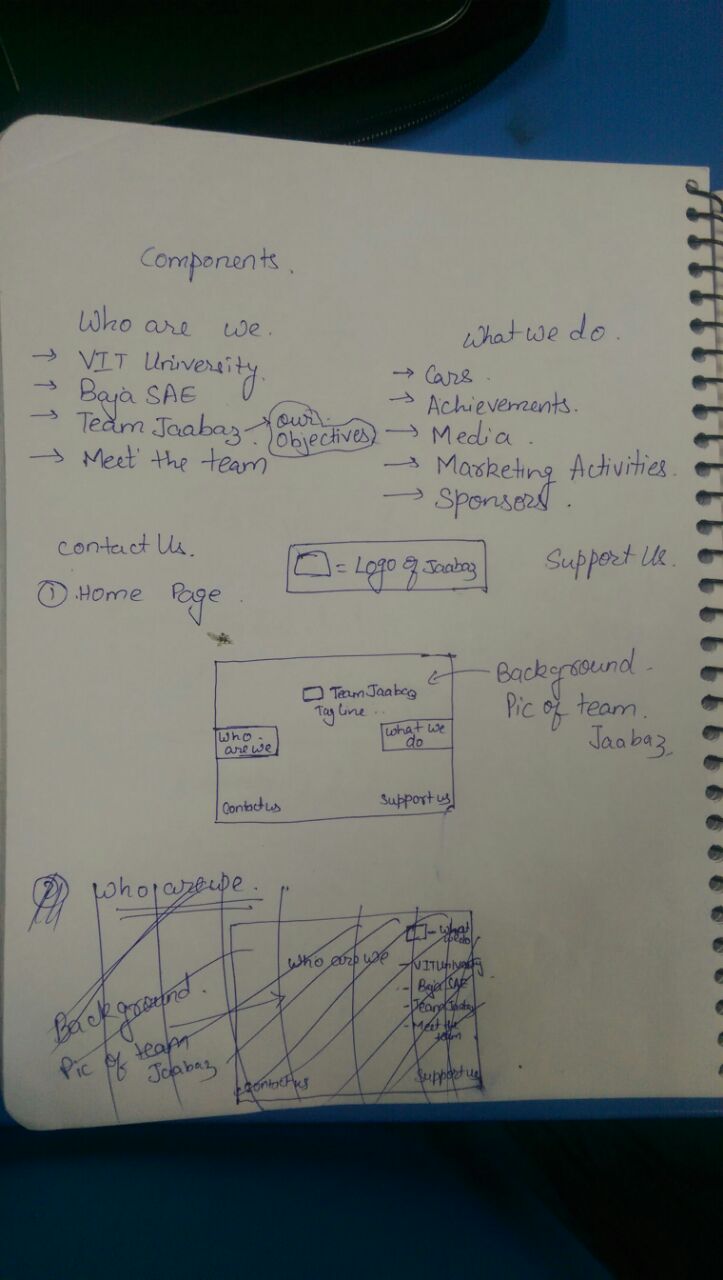 Components.
Who are we.
→ VIT University.
→ Baja SAE
→ Team Jaabaz. → our Objectives
→ Meet the team
What we do.
→ Cars.
→ Achievements.
→ Media.
→ Marketing Activities.
→ Sponsors.
Contact Us.
= Logo of Jaabaz
Support Us.
① Home Page.
Team Jaabaz
Tag line ..
Who are we
What we do
Contact us
Support us
Background.
Pic of team.
Jaabaz.
② Who are we.
- What we do
Who are we
- VIT University
- Baja SAE
- Team Jaabaz
- Meet the team
Contact us
Support us
Background.
Pic of team
Jaabaz